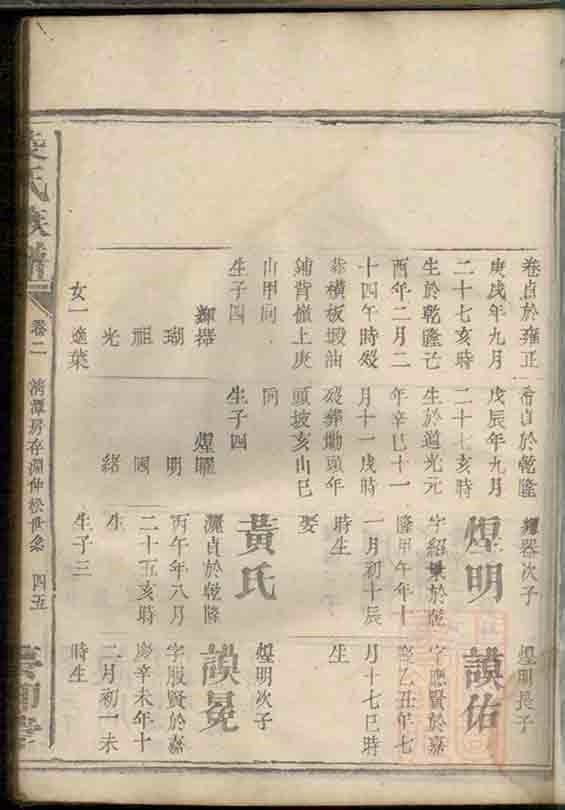 貞於雍正
庚戌年九月
二十七亥時
生於乾隆己
酉年二月二
十四午時歿
葬橫板塅油
鋪背嶺上庚
山甲向
生子四
輝器
瑚
祖
光
女一適葉
貞於乾隆
戊辰年九月
二十七亥時
生於道光元
年辛巳十一
月十一戌時
歿葬勘頭年
頭坡亥山巳
向
生子四
煌曜
明
國
緒
輝器次子
煌明
字紹於乾
隆甲午年十
一月初十辰
時生
娶
黃氏
貞於乾隆
丙午年六月
二十五亥時
生
生子三
煌明長子
謨佑
字應賢於嘉
慶乙丑年七
月十七巳時
生
煌明次子
謨冕
字服賢於嘉
慶辛未年十
二月初一未
時生
氏族譜
卷二
清潭房存淵仲松世系
四五
堂